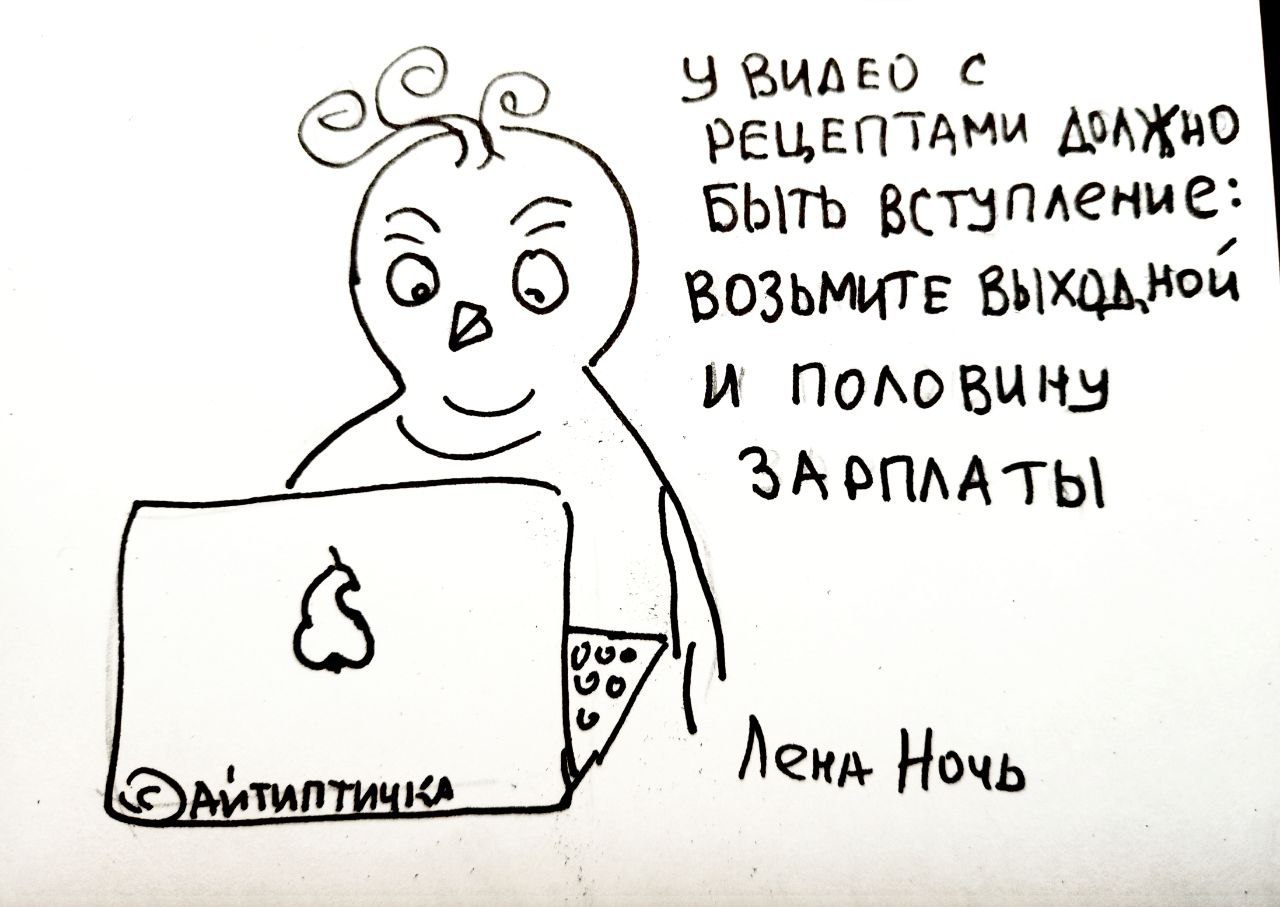 У ВИДЕО С
РЕЦЕПТАМИ ДОЛЖНО
БЫТЬ ВСТУПЛЕНИЕ:
ВОЗЬМИТЕ ВЫХОДНОЙ
И ПОЛОВИНУ
ЗАРПЛАТЫ
Лена Ночь
© АЙТИПТИЧКА